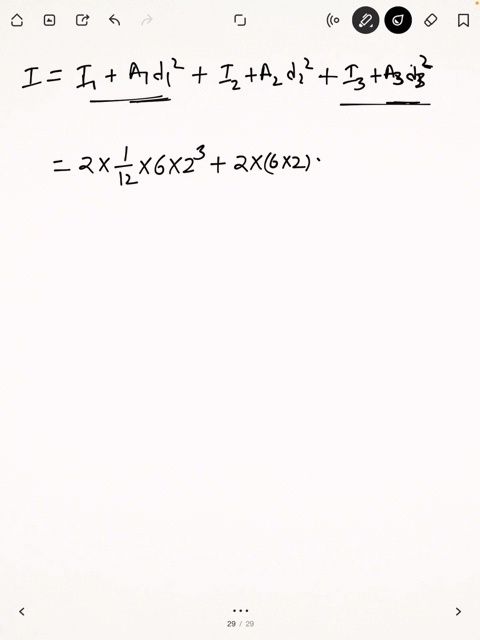 I = I₁ + A₁d₁² + I₂ + A₂d₂² + I₃ + A₃d₃²
= 2 × 1/12 × 6 × 2³ + 2 × (6 × 2) ·
29 / 29